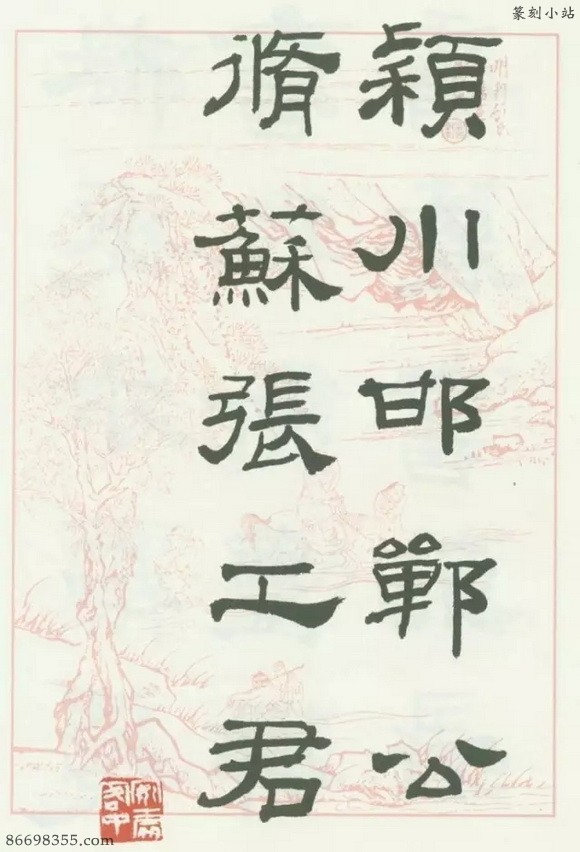 篆刻小站
穎川邯鄲公
脩蘇張工君
86698355.com